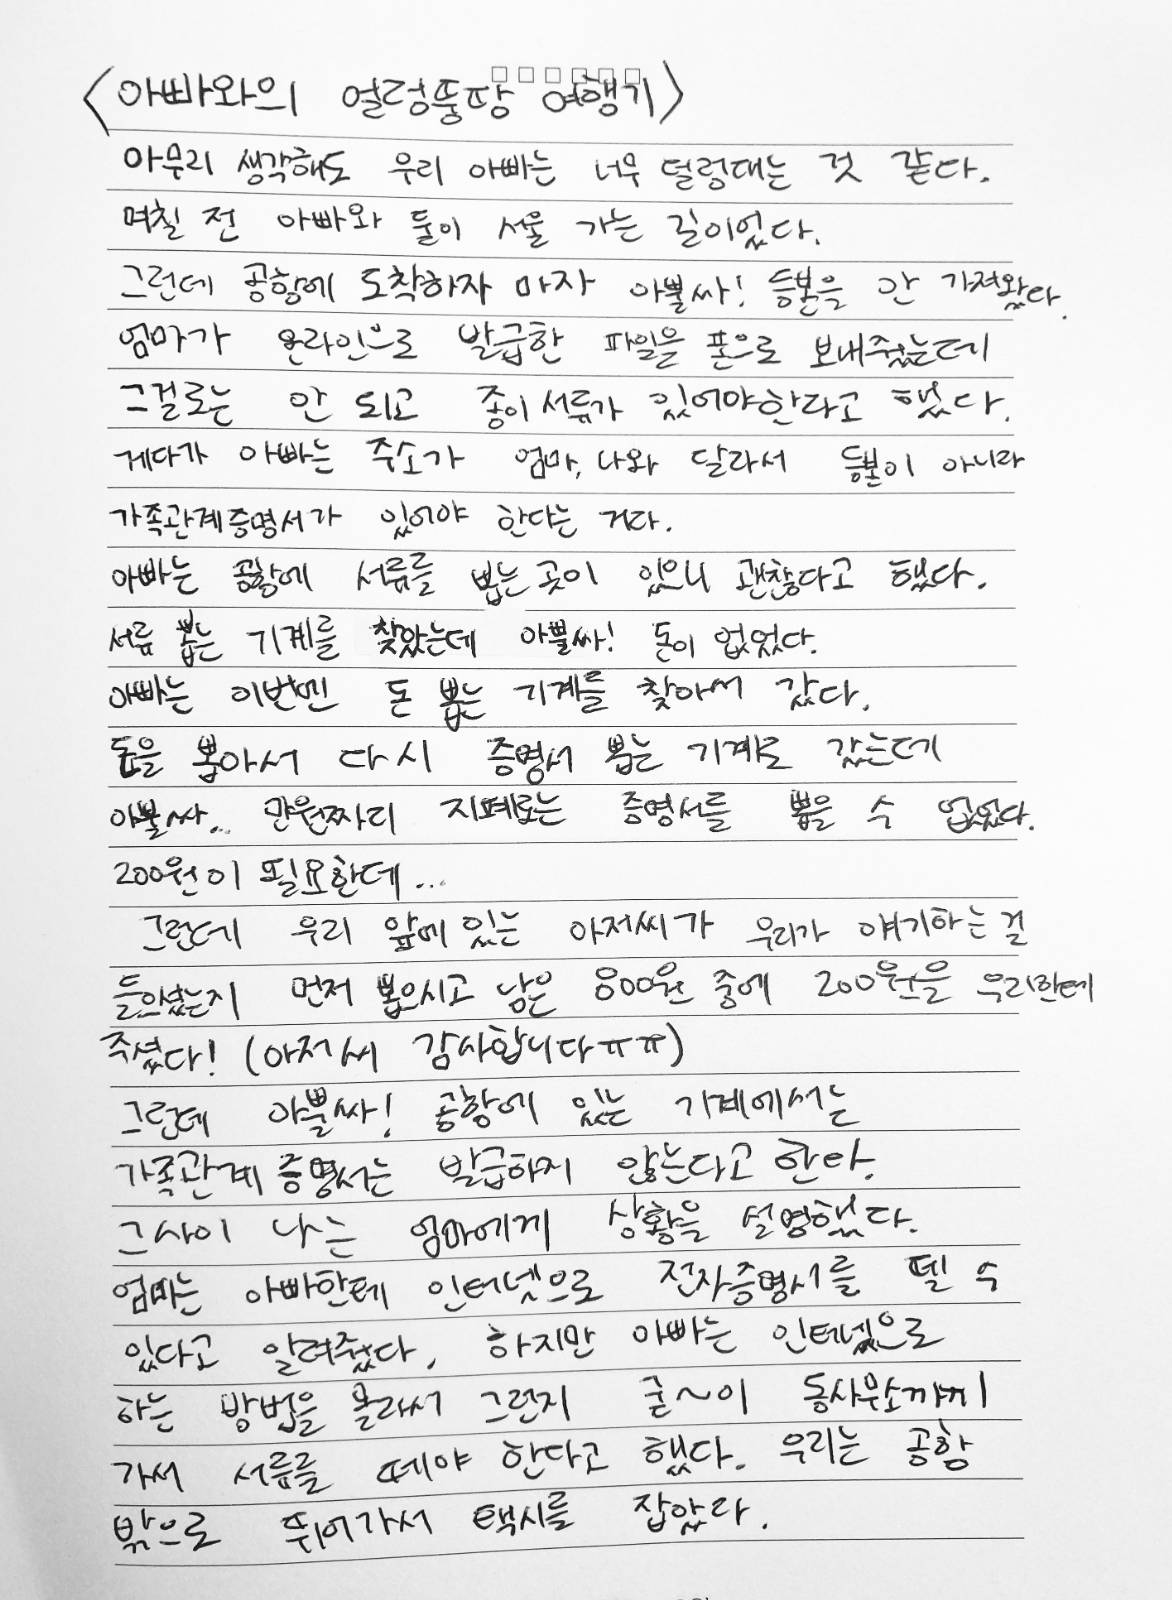 <아빠와의 얼렁뚱땅 여행기>
아무리 생각해도 우리 아빠는 너무 덜렁대는 것 같다.
며칠 전 아빠와 둘이 서울 가는 길이었다.
그런데 공항에 도착하자 마자 아뿔싸! 등본을 안 가져왔다.
엄마가 온라인으로 발급한 파일을 폰으로 보내줬는데
그걸로는 안 되고 종이 서류가 있어야한다고 했다.
게다가 아빠는 주소가 엄마, 나와 달라서 등본이 아니라
가족관계증명서가 있어야 한다는 거다.
아빠는 공항에 서류를 뽑는 곳이 있으니 괜찮다고 했다.
서류 뽑는 기계를 찾았는데 아뿔싸! 돈이 없었다.
아빠는 이번엔 돈 뽑는 기계를 찾아서 갔다.
돈을 뽑아서 다시 증명서 뽑는 기계로 갔는데
아뿔싸... 만원짜리 지폐로는 증명서를 뽑을 수 없었다.
200원이 필요한데...
그런데 우리 앞에 있는 아저씨가 우리가 얘기하는 걸
들으셨는지 먼저 뽑으시고 남은 800원 중에 200원을 우리한테
주셨다! (아저씨 감사합니다ㅠㅠ)
그런데 아뿔싸! 공항에 있는 기계에서는
가족관계증명서는 발급하지 않는다고 한다.
그사이 나는 엄마에게 상황을 설명했다.
엄마는 아빠한테 인터넷으로 전자증명서를 뗄 수
있다고 알려줬다. 하지만 아빠는 인테넷으로
하는 방법을 몰라서 그런지 굳~이 동사무소까지
가서 서류를 떼야 한다고 했다. 우리는 공항
밖으로 뛰어가서 택시를 잡았다.